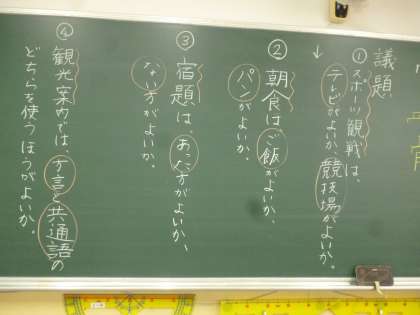 議題
①スポーツ観戦は、
テレビがよいか、競技場がよいか。
②朝食はご飯がよいか、
パンがよいか。
③宿題は、あった方がよいか、
ない方がよいか。
④観光案内では、方言と共通語の
どちらを使うほうがよいか。